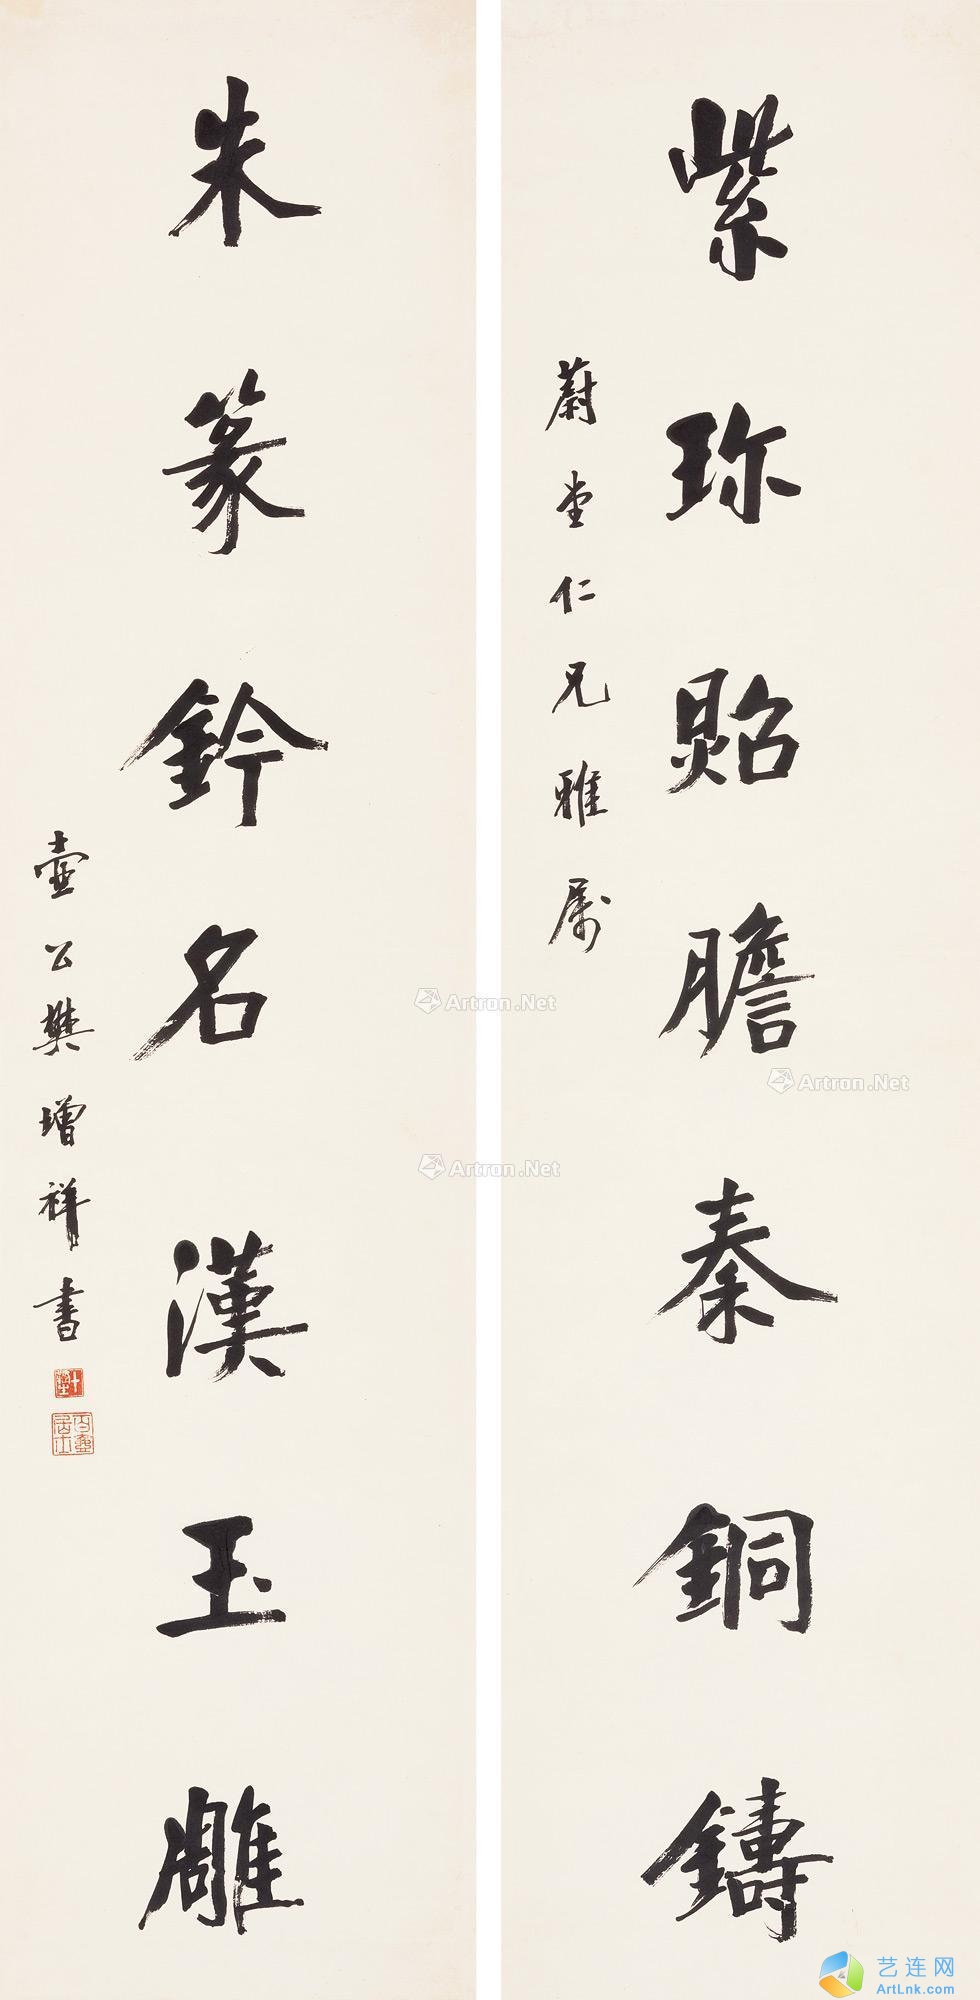 紫珎貽膽秦銅鑄
蔚堂仁兄雅属
朱篆鈐名漢玉雕
壺公樊增祥書
Artron.Net
Artron.Net
Artron.Net
艺连网
ArtLnk.com